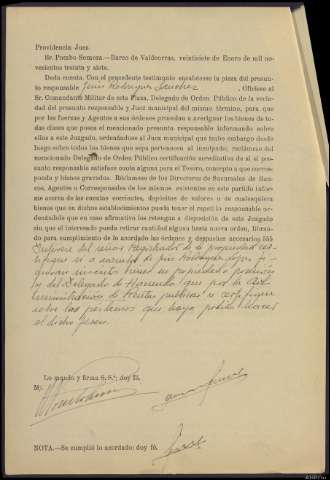 Providencia Juez
Sr. Pombo Somoza.—Barco de Valdeorras, veintisiete de Enero de mil no-
vecientos treinta y siete.
Dada cuenta. Con el precedente testimonio encabécese la pieza del presun-
to responsable Jesus Rodriguez Sanchez. Ofíciese al
Sr. Comandante Militar de esta Plaza, Delegado de Orden Público de la vecin-
dad del presunto responsable y Juez municipal del mismo término, para que
por las fuerzas y Agentes a sus órdenes procedan a averiguar los bienes de to-
das clases que posea el mencionado presunto responsable informando sobre
ellos a este Juzgado, ordenándose al Juez municipal que trabe embargo desde
luego sobre todos los bienes que sepa pertenecen al inculpado; recíbase del
mencionado Delegado de Orden Público certificación acreditativa de si el pre-
sunto responsable satisface cuota alguna para el Tesoro, concepto a que corres-
ponda y bienes gravados. Reclámese de los Directores de Sucursales de Ban-
cos, Agentes o Corresponsales de los mismos existentes en este partido infor-
me acerca de las cuentas corrientes, depósitos de valores o de cualesquiera
bienes que en dichos establecimientos pueda tener el repetido responsable or-
denándoles que en caso afirmativo los retengan a disposición de este Juzgado
sin que el interesado pueda retirar cantidad alguna hasta nueva orden, librán-
dose para cumplimiento de lo acordado las órdenes y despachos necesarios
del señor Registrador de la propiedad cer-
tifique si a nombre de
inscritos bienes en propiedad o posesion
y del Delegado de Hacienda que por la Ad-
ministracion de Rentas publicas se certifique
sobre los
el dicho Jesus.
Lo mandó y firma S. S.ª; doy fé.
NOTA.—Se cumplió lo acordado; doy fé.